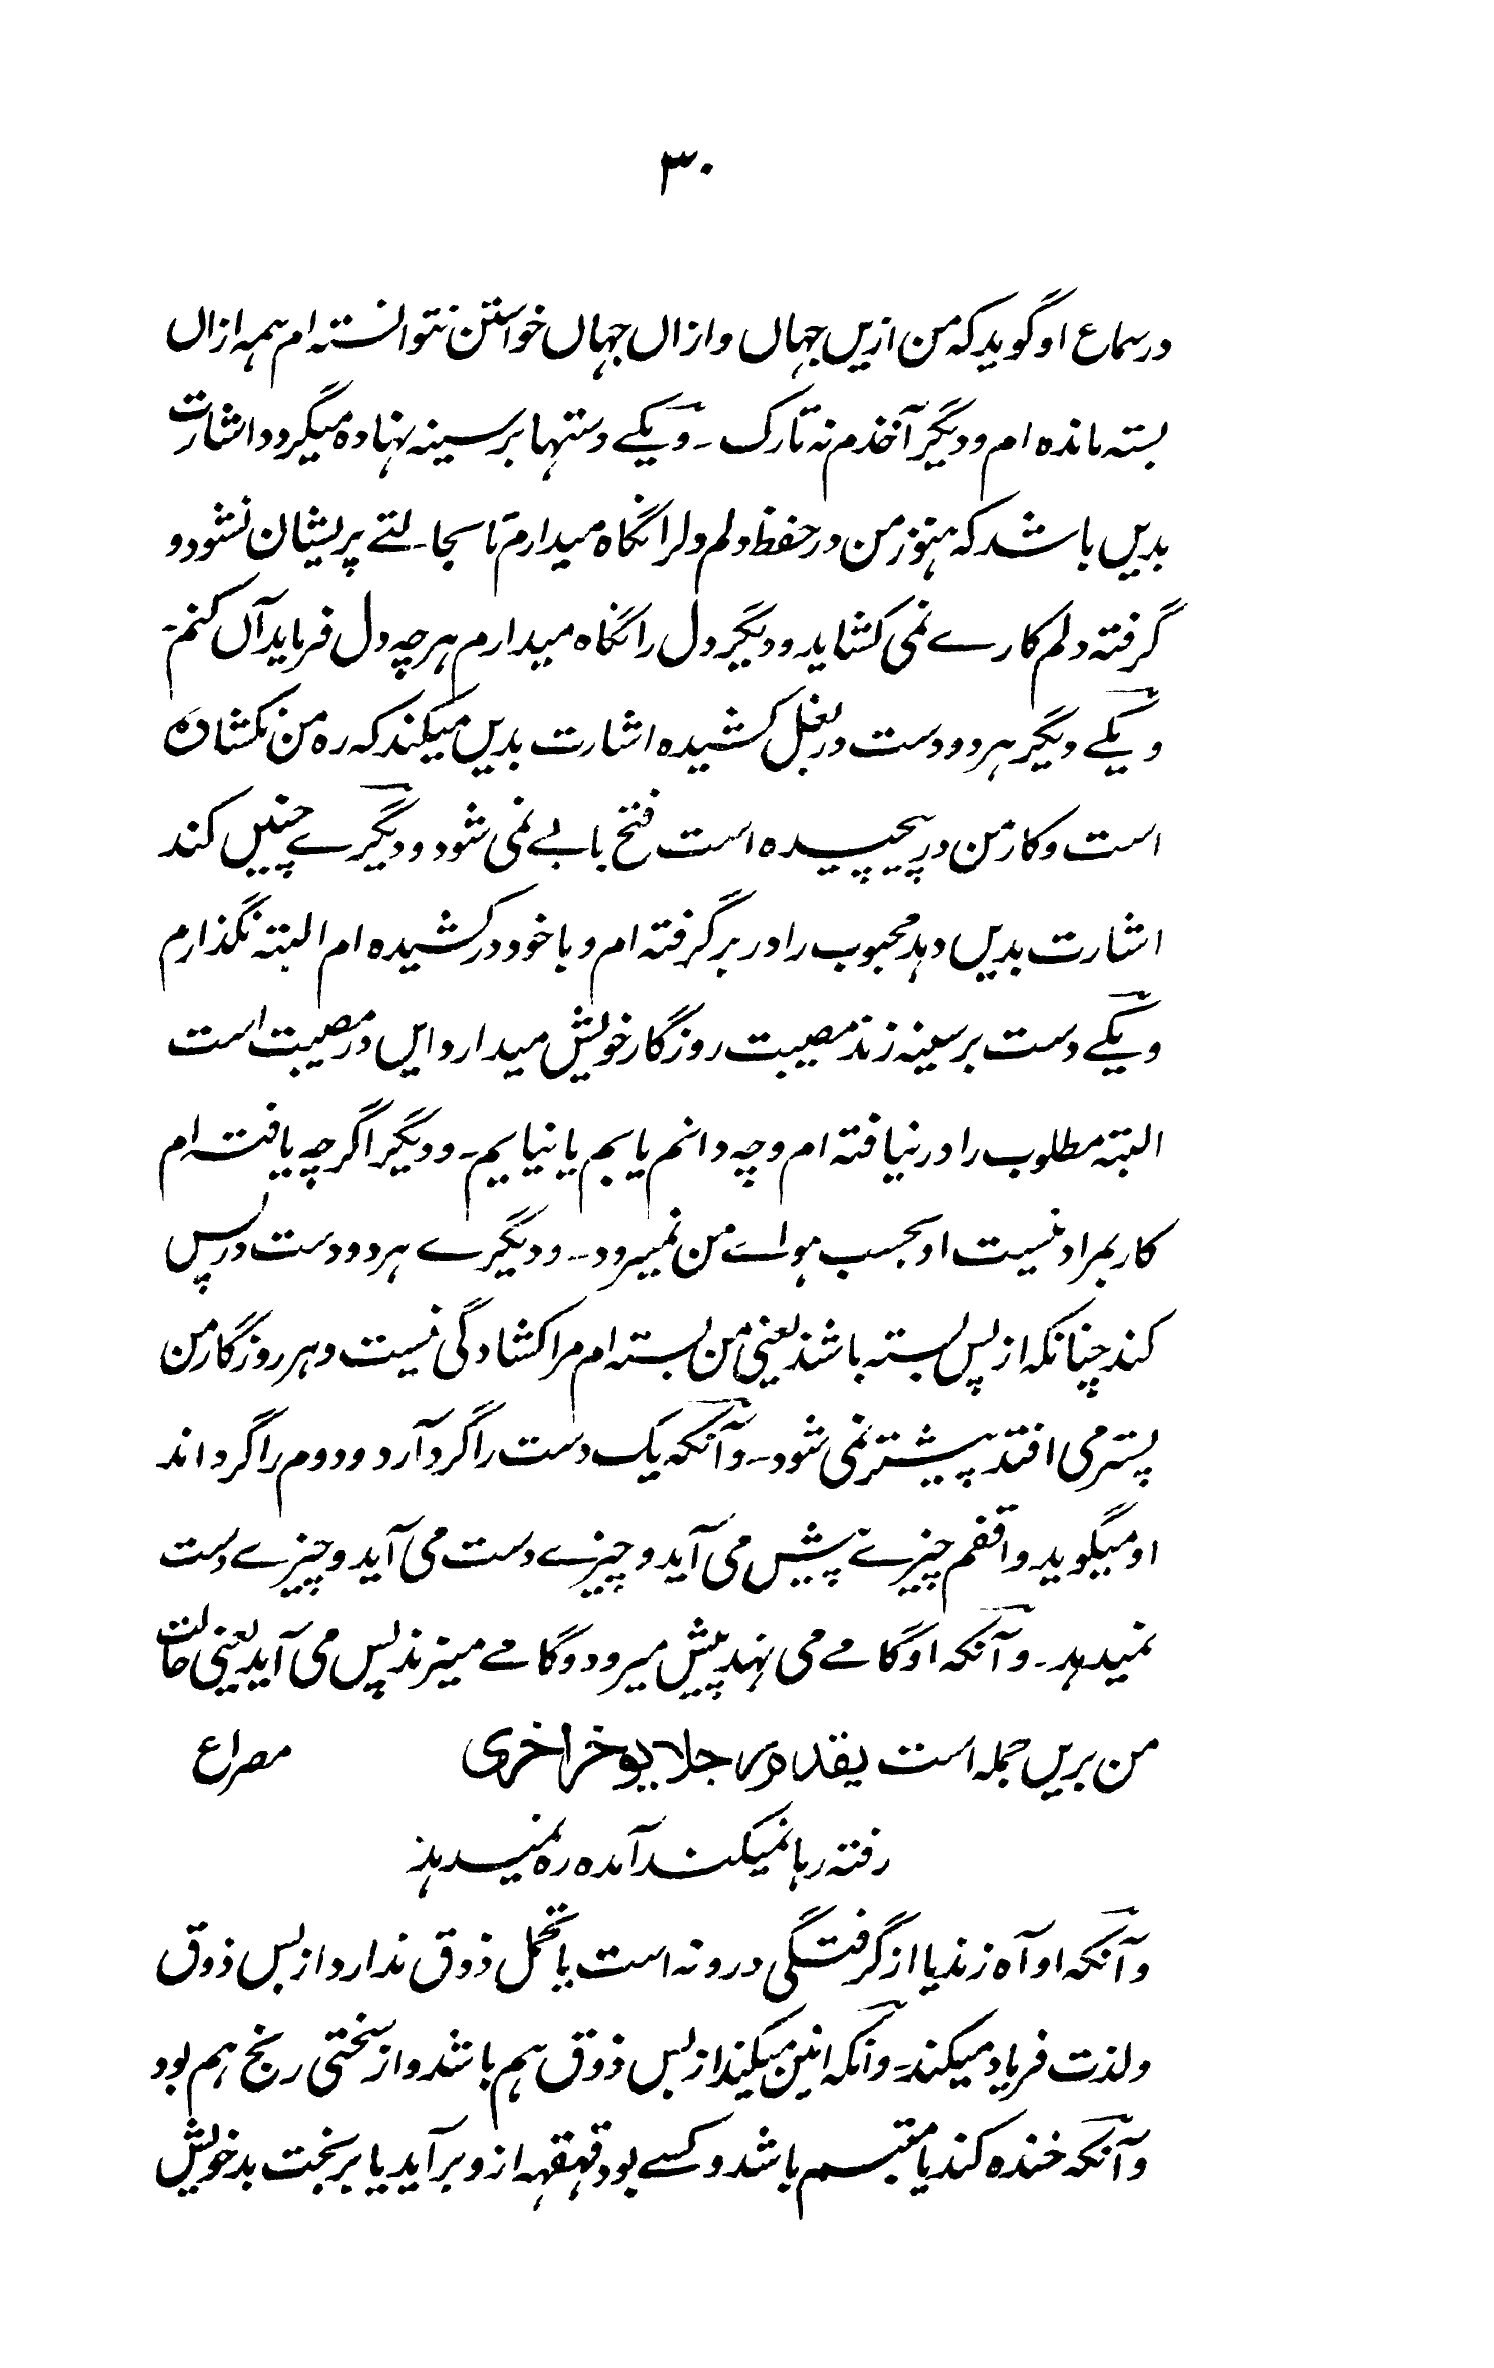 ۳۰
در سماع او گوید که من ازیں جہاں و ازاں جہاں خواستن نتوانستہ ام ہمہ ازاں
بستہ ماندہ ام و دیگر آخذم نہ تارک ۔ و یکے دستہا بر سینہ نہادہ میگردد اشارت
بدیں باشد کہ ہنوز من در حفظ دلم دلرا نگاہ میدارم تا بحالتے پریشان نشود و
گرفتہ دلم کارے نمی کشاید و دیگر دل را نگاہ میدارم ہرچہ دل فرماید آں کنم ۔
و یکے دیگر ہر دو دست در بغل کشیدہ اشارت بدیں میکند کہ رہ من نکشادہ
است و کار من در پیچیدہ است فتح بابے نمی شود و دیگرے چنیں کند
اشارت بدیں دہد محبوب را در بر گرفتہ ام و با خود در کشیدہ ام البتہ نگذارم
و یکے دست بر سینہ زند مصیبت روزگار خویش میدارد ایں در مصیبت است
البتہ مطلوب را در نیافتہ ام و چہ دانم یابم یا نیابم ۔ و دیگر اگرچہ یافتہ ام
کار بمراد نیست او بحسب ہواے من نمیرود ۔ و دیگرے ہر دو دست در پس
کند چنانکہ از پس بستہ باشند یعنی من بستہ ام مرا کشادگی نیست و ہر روز کار من
پستر می افتد پیشتر نمی شود ۔ و آنکہ یک دست را گرد آرد و دوم را گرداند
او میگوید واقفم چیزے پیش می آید و چیزے دست می آید و چیزے دست
نمیدہد ۔ و آنکہ او گامے می نہد پیش میرود و گامے میزند پس می آید یعنی حالت
من بریں جملہ است یقدم رجلا یوخر اخری مصراع
رفتہ رہا نمیکند آمدہ رہ نمیدہد
و آنکہ او آہ زند یا از گرفتگی درونہ است یا تحمل ذوق ندارد از بس ذوق
و لذت فریاد میکند ۔ و آنکہ انین میکند از بس ذوق ہم باشد و از سختی رنج ہم بود
و آنکہ خندہ کند یا متبسم باشد و کسے بود قہقہہ ازو برآید یا بر بخت بد خویش